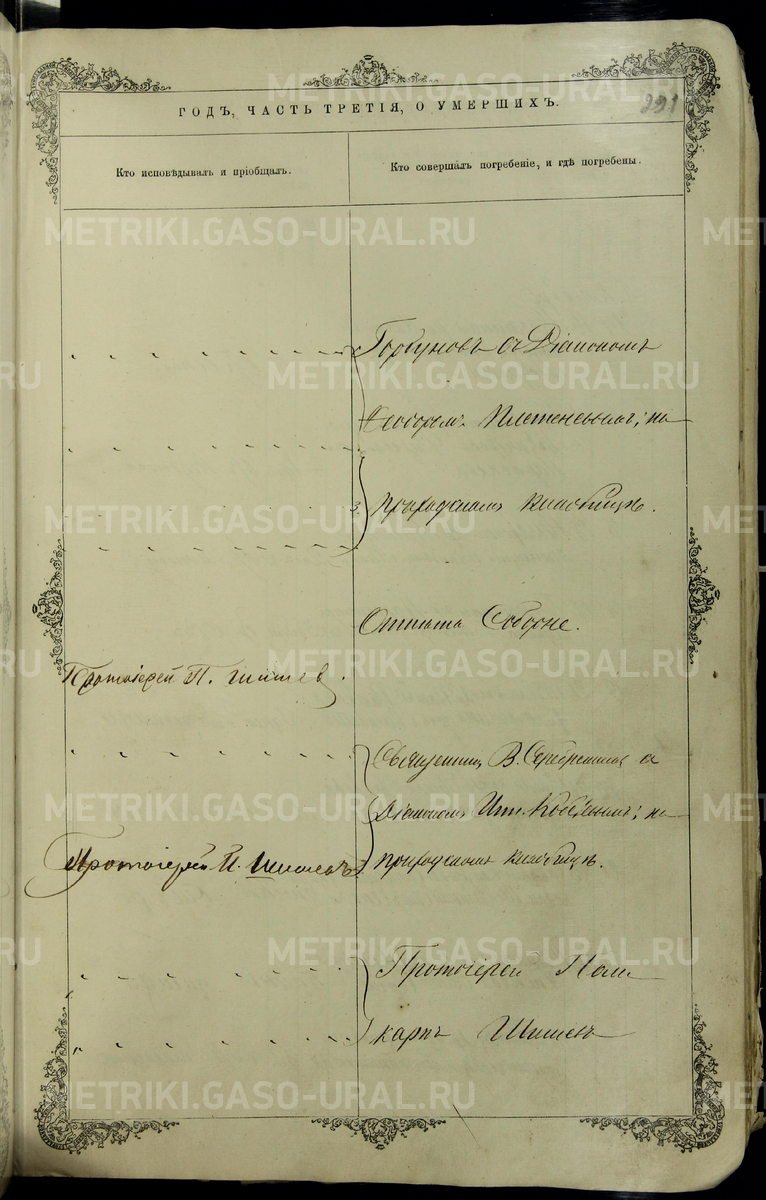 ГОДЪ, ЧАСТЬ ТРЕТІЯ, О УМЕРШИХЪ.
Кто исповѣдывалъ и пріобщалъ.
Кто совершалъ погребеніе, и гдѣ погребены.
Горбуновъ съ Діакономъ
Плетеневымъ; на
приходскомъ кладбищѣ.
Отпѣта Соборне.
Протоіерей П. Шишев
Священникъ В. Серебренниковъ съ
Діакономъ на
Протоіерей П. Шишевъ
приходскомъ кладбищѣ.
Протоіерей Поли
карпъ Шишевъ
METRIKI.GASO-URAL.RU